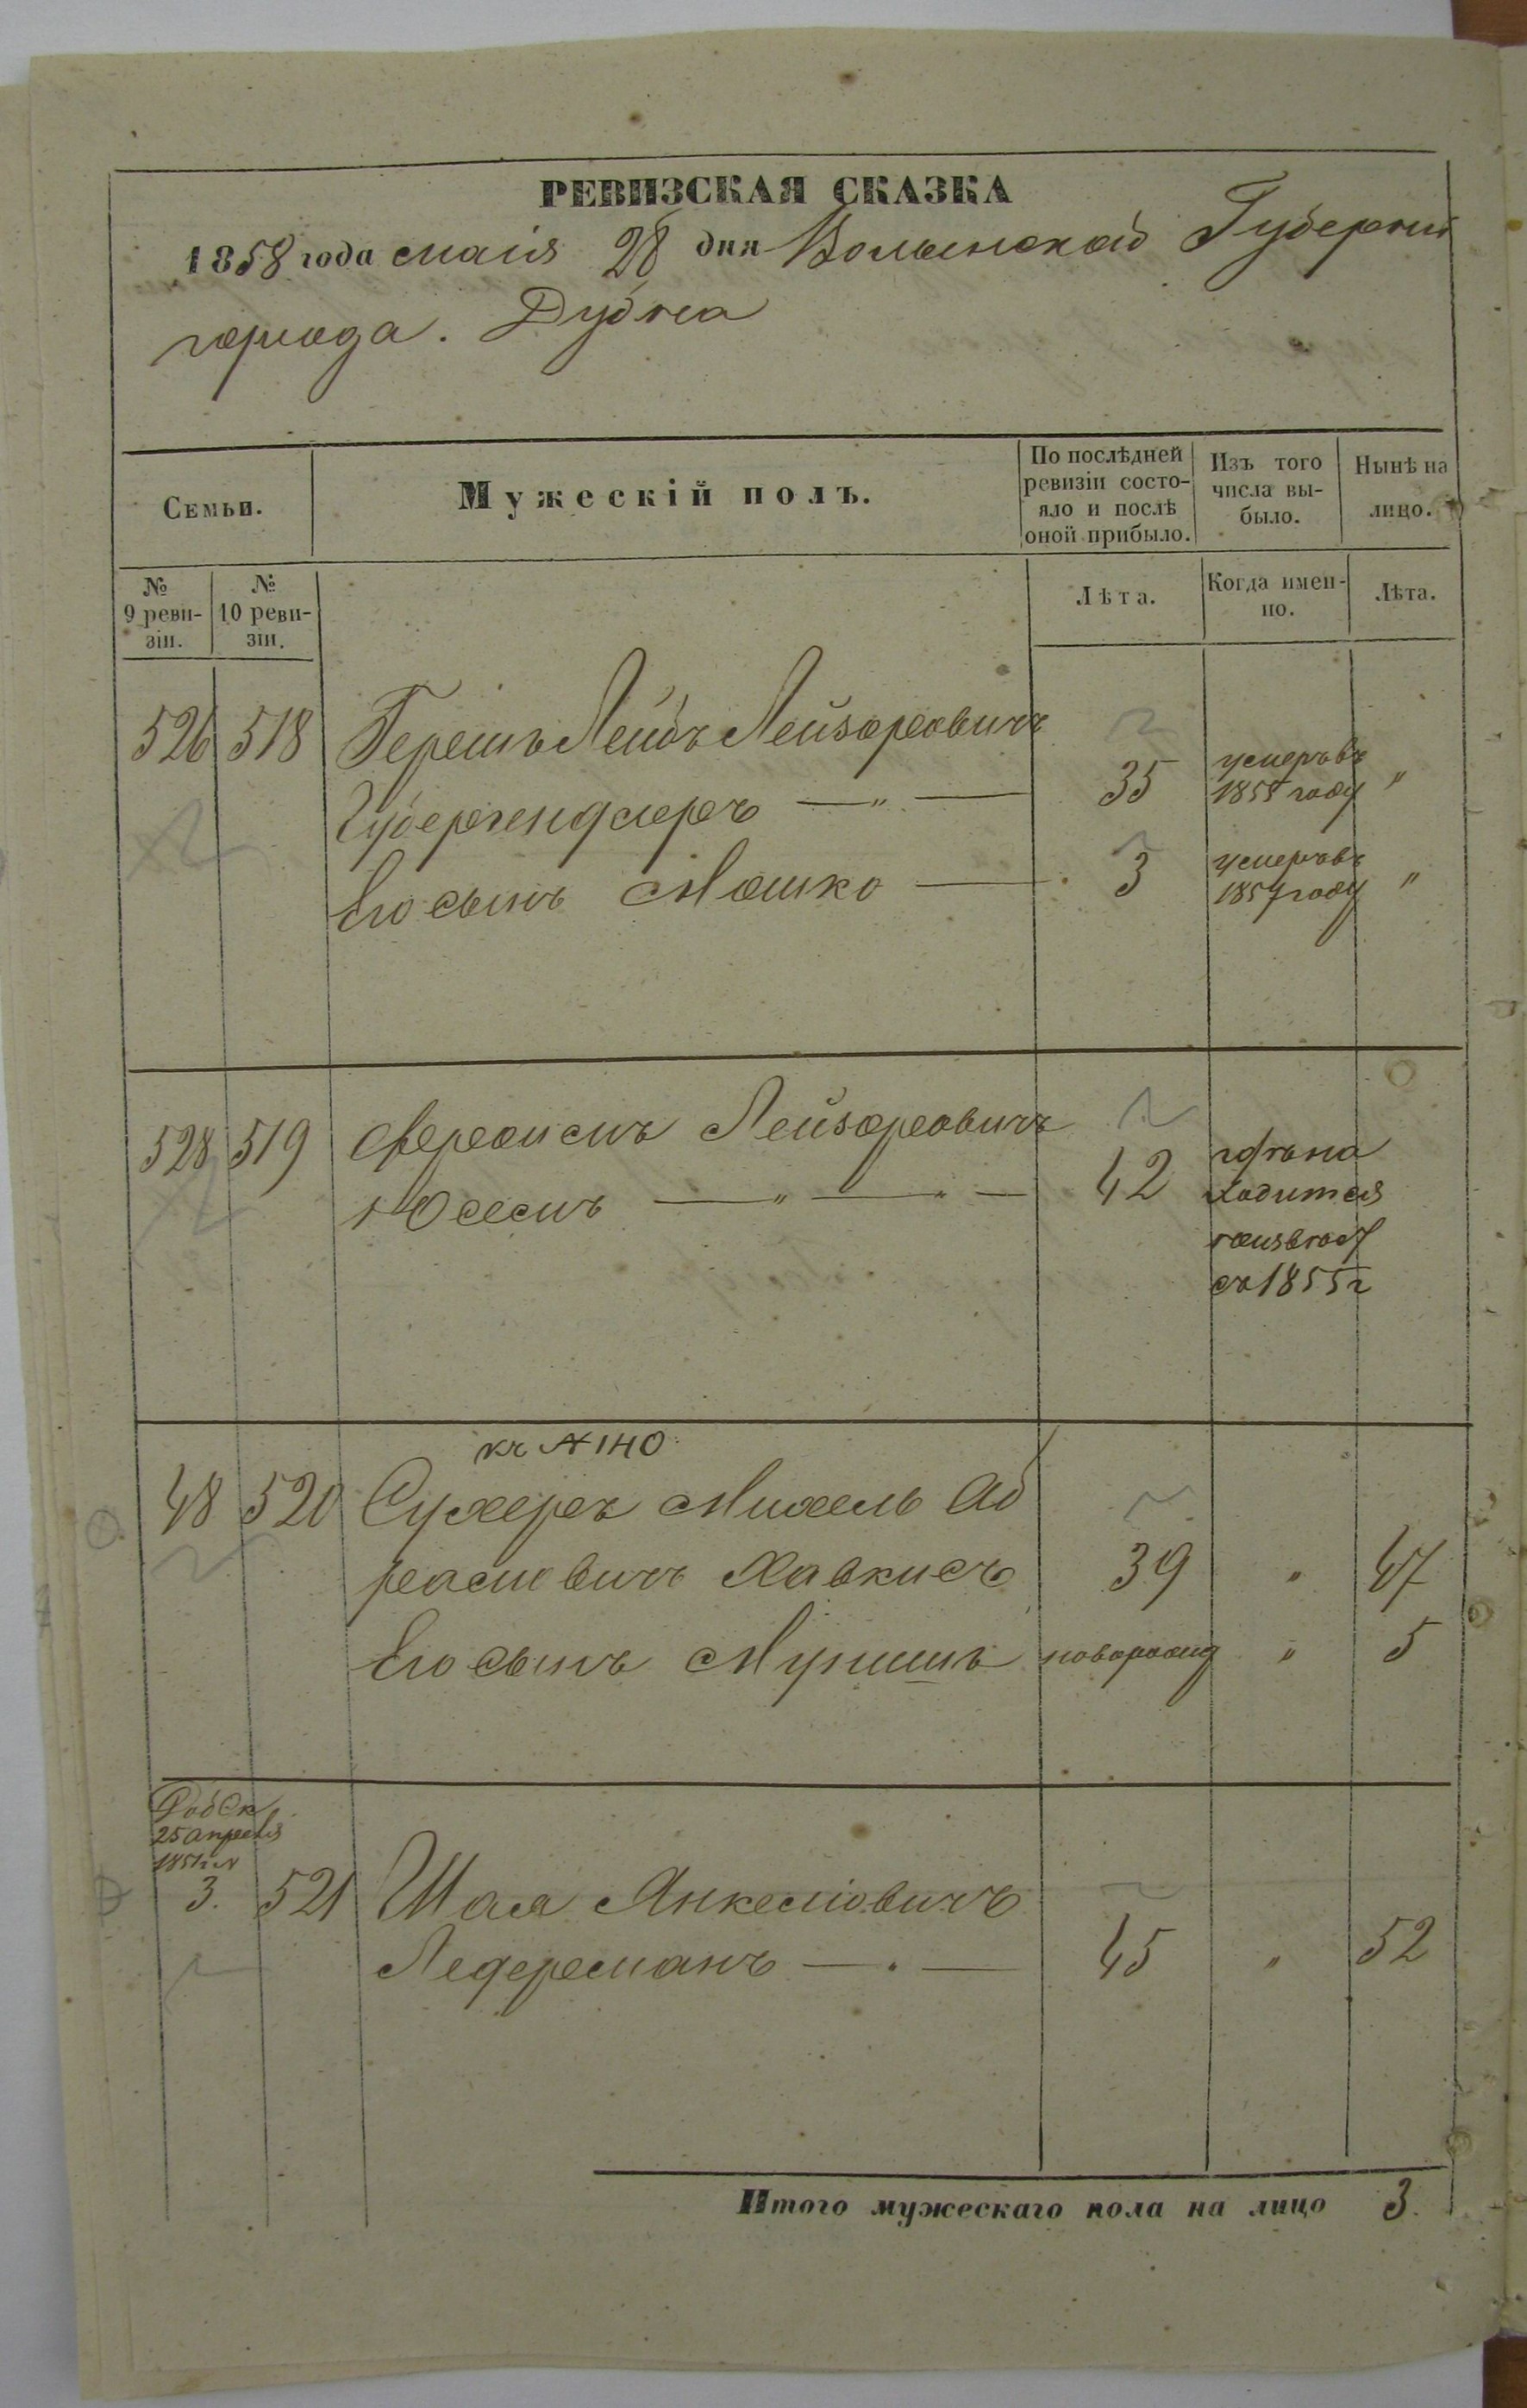 РЕВИЗСКАЯ СКАЗКА
1858 года маія 28 дня Волынской Губерніи
города. Дубна
Семьи.
Мужескій полъ.
По послѣдней ревизіи состо-
яло и послѣ
оной прибыло.
Изъ того
числа вы-
было.
Нынѣ на
лицо.
№
9 реви-
зіи.
№
10 реви-
зіи.
Лѣта.
Когда имен-
но.
Лѣта.
526 518 Гершъ Лейбъ Лейзоровичъ
35 умеръ въ 1855 году "
Его сынъ Мошко 3 умеръ въ 1857 году "
528 519 Лейзоровичъ
42
съ 1855 г
къ № 140
48 520 Сухеръ Михель Аб
рамовичъ Хавкисъ 39 " 47
Его сынъ Мунишъ новорожд " 5
Доб Ск
25 апреля
1851 г №
3. 521 Шая Янкелювичъ
Ледерманъ 45 " 52
Итого мужескаго пола на лицо 3.